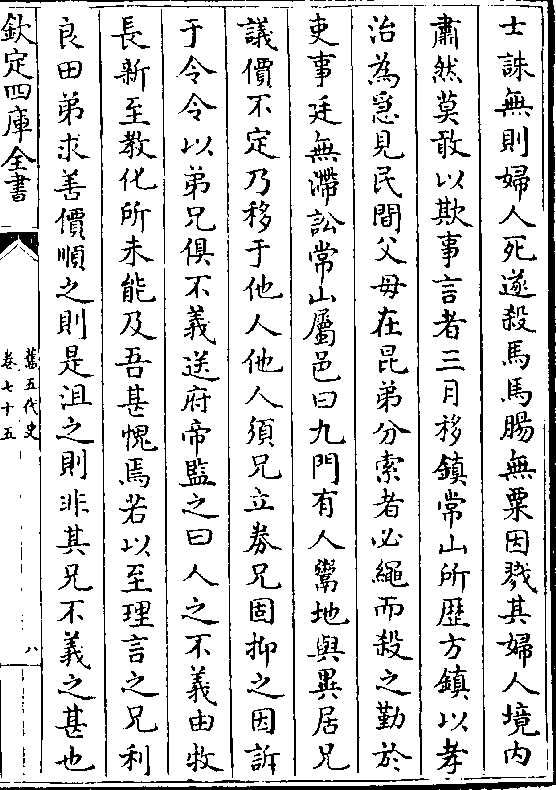 士誅無則婦人死遂殺馬馬腸無粟因戮其婦人境内
肅然莫敢以欺事言者三月移鎮常山所歴方鎮以孝
治為急見民間父母在昆弟分索者必繩而殺之勤於
吏事廷無滯訟常山屬邑曰九門有人鬻地與異居兄
議價不定乃移于他人他人須兄立劵兄固抑之因訴
于令令以弟兄俱不義送府帝監之曰人之不義由牧
長新至教化所未能及吾甚愧焉若以至理言之兄利
良田弟求善價順之則是沮之則非其兄不義之甚也
欽定四庫全書
舊五代史
卷七十五
八